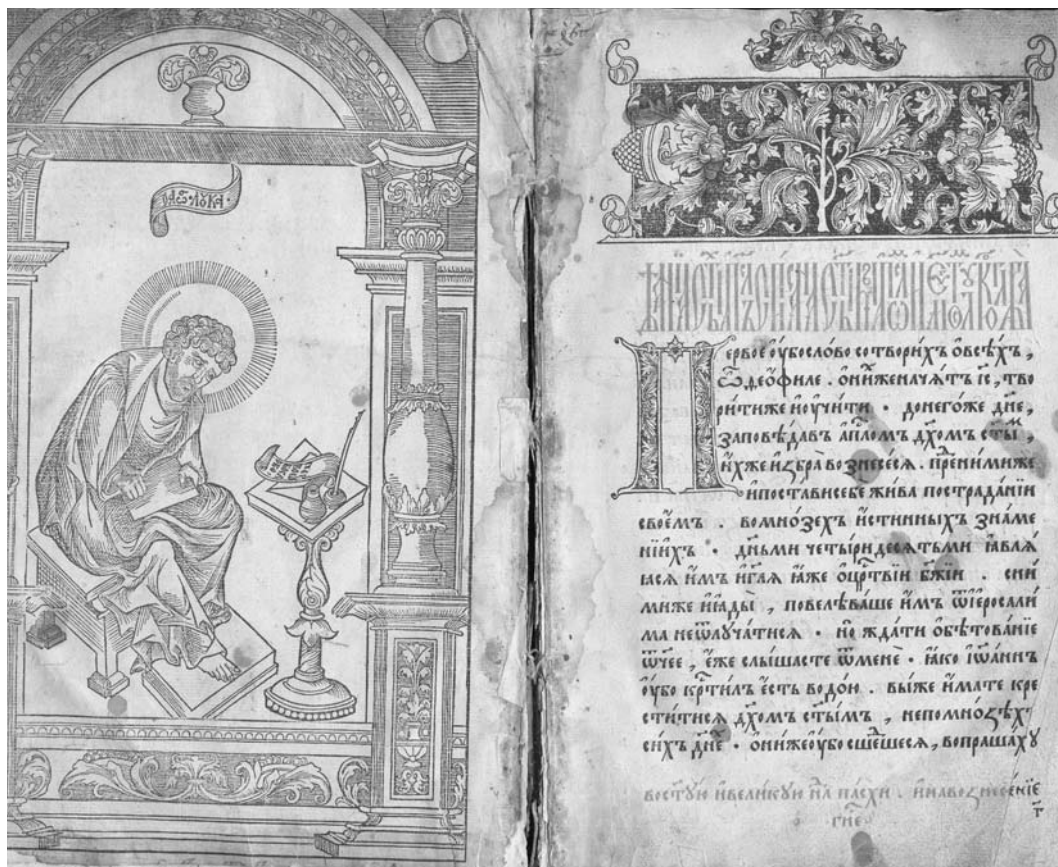 ЛꙊКА
ервое оубо слово сотворихъ о всѣхъ ,
ѽ ѳеофиле . ониже начатъ їс , тво
рити же и оучити . до негоже дн҃е ,
заповѣдавъ ап҃ломъ дх҃омъ ст҃ы ,
ихже избра вознесеся . пред ними же
и постави себе жива по страданїи
своемъ . во мнозехъ истинныхъ знаме
нїихъ . дньми четыридесятьми ꙗвлѧ
ꙗсѧ имъ и гл҃ѧ ꙗже о црⷭ҇твїи бж҃їи . сни
ми же и ꙗды , повелѣваше имъ ѿ їеросали
ма не ѿлучатисѧ . но ждати обѣтованїе
ѿчее , еже слышасте ѿ мене . ꙗко їѡаннъ
оубо крⷭ҇тилъ есть водою . вы же имате кре
ститисѧ дх҃омъ ст҃ымъ , не по мнозѣх
сихъ дн҃е . они же оубо сшедшесѧ , вопрашахꙋ
во ст҃ꙋю и великꙋю нл҃ пасхи . и на вознесенїе
гн҃е